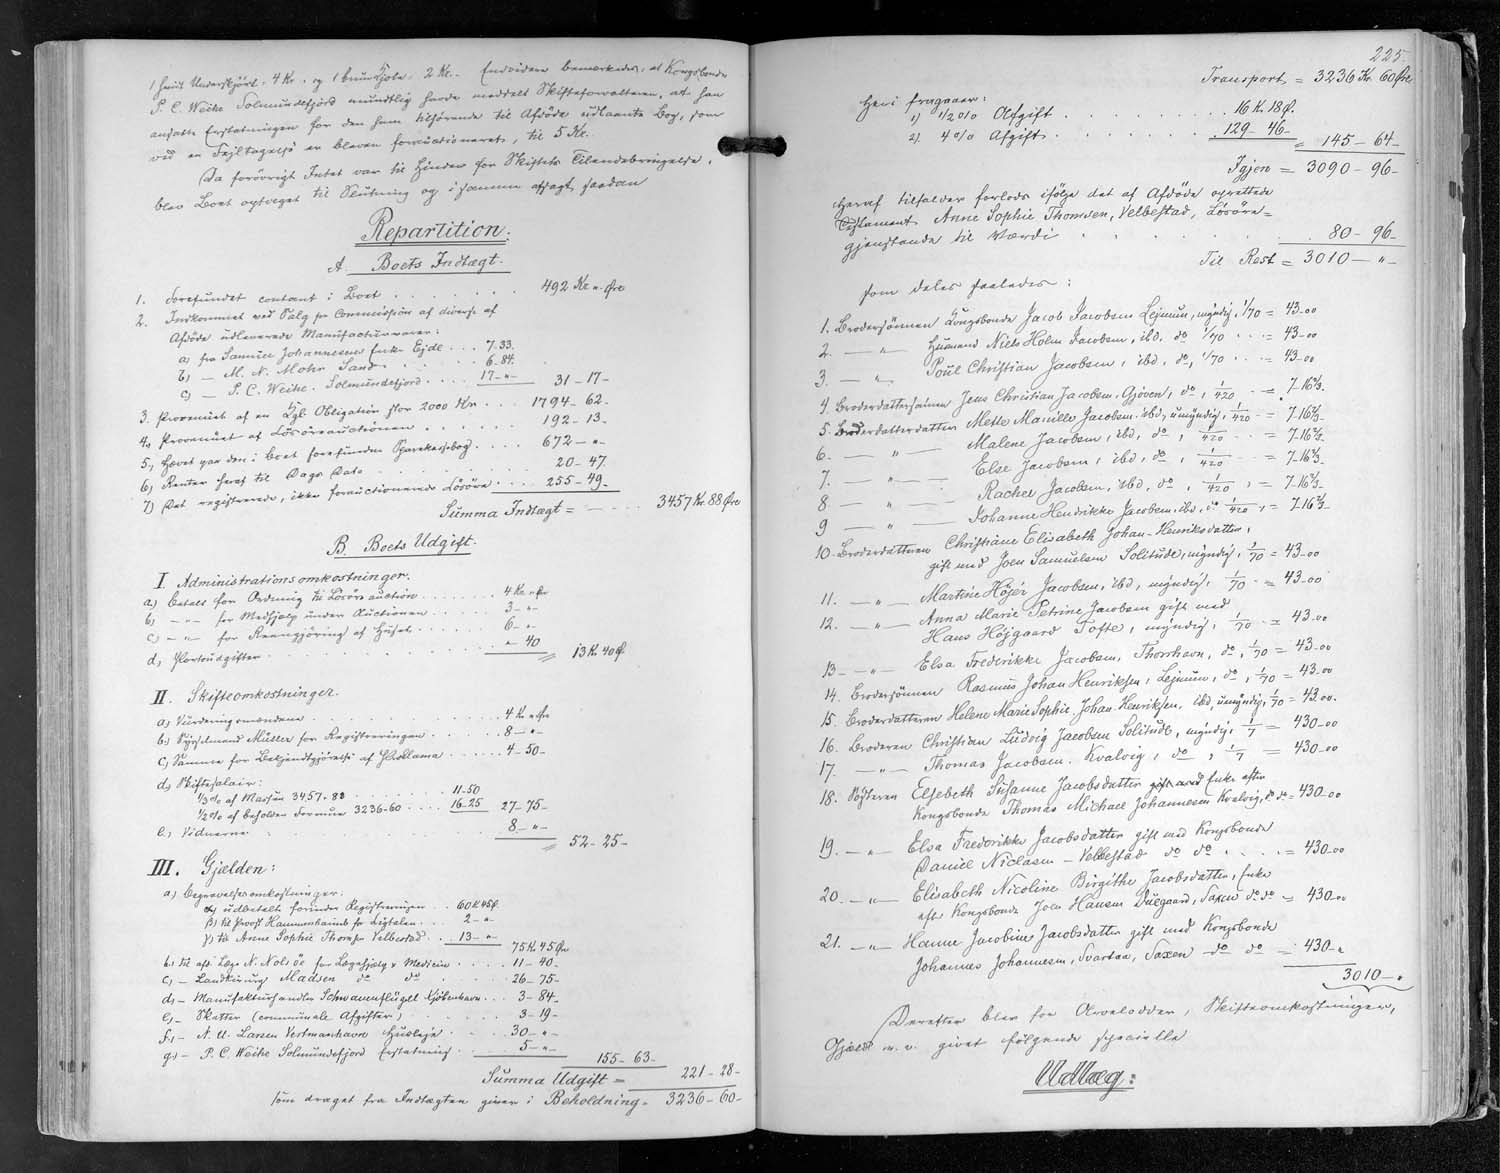 1 hvid Underskjørt. 4 Kr. og 1 brun Kjole. 2 Kr. Endvidere bemærkedes, at Kongsbonde
P. C. Weihe Solmundefjord mundtlig havde meddelt Skifteforvalteren, at han
ansatte Erstatningen for den ham tilhørende til Afdøde udlaante Bog, som
ved en Fejltagelse er bleven forauctioneret, til 5 Kr.
Da forøvrigt Intet var til Hinder for Skiftets Tilendebringelse,
blev Boet optaget til Slutning og i samme afsagt saadan
Repartition:
A. Boets Indtægt.
1. Forefundet contant i Boet . . . 492 Kr. " Øre
2. Indkommet ved Salg pr Commission af diverse af
Afdøde udleverede Manufacturvarer:
a) fra Samuel Johannesens Enke Ejde . . . 7. 33.
b) — M. N. Mohr Sand . . . 6. 84.
c) — P. C. Weihe. Solmundefjord . . . 17 — " — 31 — 17 —
3. Provenuet af en Kgl. Obligation stor 2000 Kr . . . 1794 — 62.
4. Provenuet af Løsøreauctionen . . . 192 — 13.
5, Hævet paa den i Boet forefundne Sparekassebog . . . 672 — " —
6) Renter heraf til Dags Dato . . . 20 — 47.
7) Det registrerede, ikke forauctionerede Løsøre . . . 255 — 49 —
Summa Indtægt = — . . . 3457 Kr. 88 Øre
B. Boets Udgift.
I Administrationsomkostninger.
a) betalt for Ordning til Løsøreauction . . . 4 Kr. " Øre
b) — " — for Medhjælp under Auctionen . . . 3 — " —
c) — " — for Reengjøring af Huset . . . 6 — " —
d, Portoudgifter . . . " — 40 = 13 Kr. 40 Ø.
II. Skifteomkostninger.
a) Vurderingsmændene . . . 4 Kr. " Øre
b) Sysselmand Müller for Registreringen . . . 8 — " —
c, Samme for Bekjendtgjørelse af Proklama . . . 4 — 50 —
d, Skiftesalair:
1/3 % af Massen 3457. 88 . . . 11 — 50
1/2 % af beholden Formue 3236 — 60 . . . 16 — 25 27 — 75 —
e, Vidnerne . . . 8 — " — = 52 — 25 —
III. Gjelden:
a) Begravelsesomkostninger:
α) udbetalt forinden Registreringen . . 60 Kr 45 Ø.
β) til Provst Hammershaimb for Ligtalen . . 2 — " .
γ) til Anne Sophie Thoms. Velbestad . . 13 — " — 75 Kr. 45 Øre
b, til afd. Læge N. Nolsöe for Lægehjælp & Medicin . . . 11 — 40.
c, — Landkirurg Madsen do do . . . 26 — 75 —
d, — Manufakturhandler Schwanenflügel Kjöbenhavn . . . 3 — 84 —
e, — Skatter (communale Afgifter) . . . 3 — 19 —
f, — N. U. Larsen Vestmanhavn Husleje . . . 30 — " —
g, — P. C. Weihe Solmundefjord Erstatning . . . 5 — " — 155 — 63 —
Summa Udgift = 221 — 28 —
som draget fra Indtægten giver i Beholdning = 3236 — 60 —
225.
Transport = 3236 Kr. 60 Øre
Heri fragaaer:
1) 1/2 % Afgift . . . 16 Kr. 18 Ø.
2) 4 % Afgift . . . 129 — 46 — = 145 — 64 —
Igjen = 3090 — 96 —
Heraf tilfalder forlods ifølge det af Afdøde oprettede
Testament Anne Sophie Thomsen, Velbestad, Løsøre=
gjenstande til Værdi . . . 80 — 96 —
Til Rest = 3010 — " —
som deles saaledes:
1. Brodersönnen Kongsbonde Jacob Jacobsen Lejnum, myndig, 1/70 = 43 — 00
2. — " — Husmand Niels Holm Jacobsen, ibd. do 1/70 . . . = 43 — 00
3. — " — Poul Christian Jacobsen, ibd, do, 1/70 . . . = 43 — 00
4. Broderdattersönnen Jens Christian Jacobsen. Gjöven, do, 1/420 . = 7 — 16 2/3.
5. Broderdatterdatter Mette Marille Jacobsen. ibd, umyndig, 1/420 = 7 — 16 2/3
6. — " — Malene Jacobsen, ibd, do, 1/420 . . = 7 — 16 2/3
7. — " — Else Jacobsen, ibd, do, 1/420 . . = 7 — 16 2/3
8 — " — Rachel Jacobsen, ibd, do, 1/420 , = 7 — 16 2/3
9 — " — Johanne Hendrikke Jacobsen, ibd, do 1/420 , = 7 — 16 2/3
10. Broderdatteren Christiane Elisabeth Johan-Henriksdatter,
gift med Joen Samuelsen Solitude, myndig, 1/70 = 43 — 00
11. — " — Martine Höjer Jacobsen, ibd, myndig, 1/70 . = 43 — 00
12. — " — Anna Marie Petrine Jacobsen gift med
Hans Höjgaard Tofte, myndig, 1/70 . = 43 — 00
13 — " — Elsa Frederikke Jacobsen, Thorshavn, do, 1/70 = 43 — 00
14. Brodersönnen Rasmus Johan Henriksen, Lejnum, do, 1/70 = 43 — 00
15. Broderdatteren Helene Marie Sophie Johan-Henriksen, ibd, umyndig, 1/70 = 43. 00.
16. Broderen Christian Ludvig Jacobsen Solitude, myndig, 1/7 = 430 — 00
17. — " — Thomas Jacobsen. Kvalvig, do, 1/7 = 430 — 00
18. Søsteren Elsebeth Susanne Jacobsdatter Enke efter
Kongsbonde Thomas Michael Johannesen Kvalvig, do do = 430 — 00
19. — " — Elsa Frederikke Jacobsdatter gift med Kongsbonde
Daniel Niclasen — Velbestad do do . . . = 430 — 00
20. — " — Elisabeth Nicoline Birgithe Jacobsdatter, Enke
efter Kongsbonde Joen Hansen Dulgaard, Saxen do do = 430 — 00
21. — " — Hanne Jacobine Jacobsdatter gift med Kongsbonde
Johannes Johannesen, Svartaa, Saxen do do = 430 — "
3010 — "
Derefter blev for Arvelodder, Skifteomkostninger,
Gjæld m. v. givet følgende specielle
Udlæg: